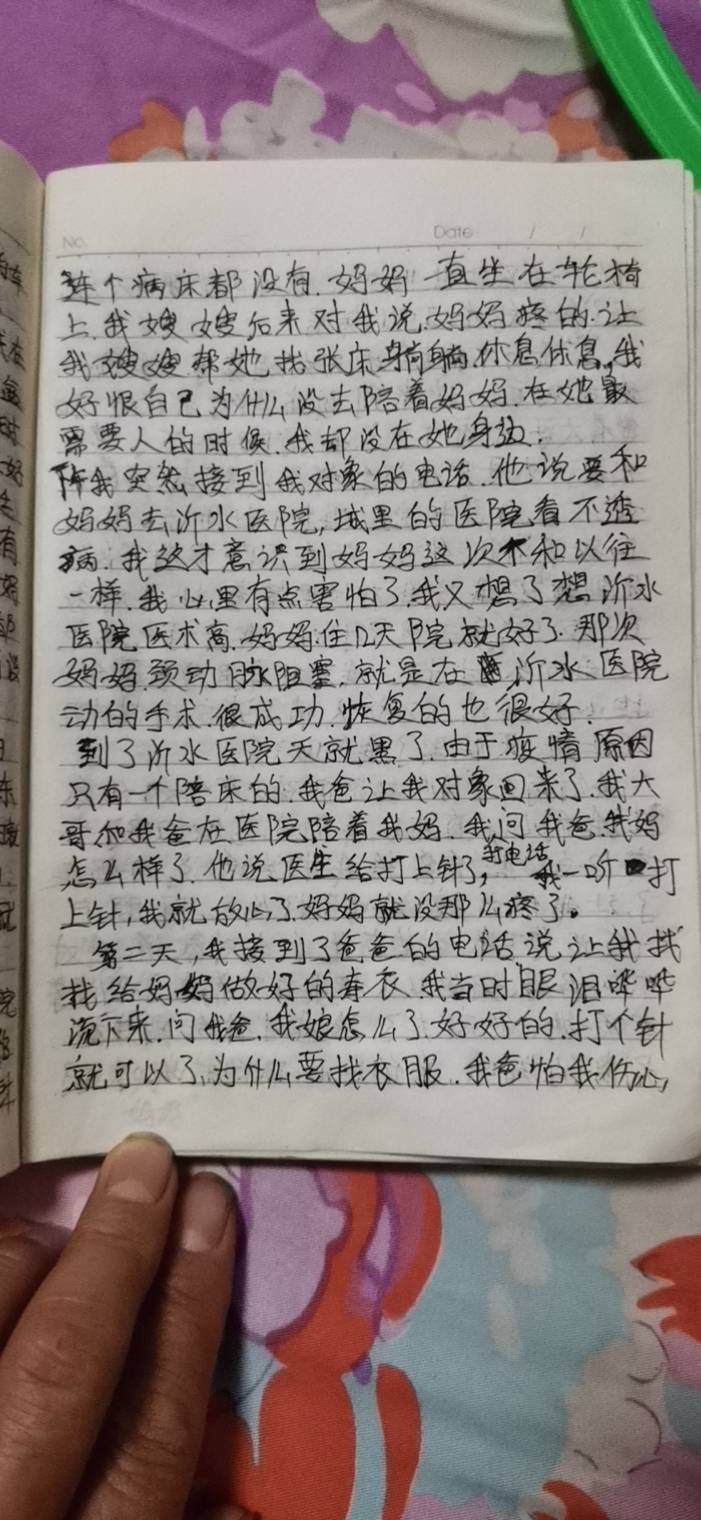 No.
Date / /
连个病床都没有.妈妈一直坐在轮椅
上.我嫂嫂后来对我说.妈妈疼的.让
我嫂嫂帮她找张床躺躺.休息休息,我
好恨自己为什么没去陪着妈妈.在她最
需要人的时候.我却没在她身边.
我突然接到我对象的电话.他说要和
妈妈去沂水医院,城里的医院看不透
病.我这才意识到妈妈这次不和以往
一样.我心里有点害怕了.我又想了想沂水
医院医术高.妈妈.住几天院就好了.那次
妈妈.颈动脉阻塞.就是在沂水医院
动的手术.很成功.恢复的也很好.
到了沂水医院天就黑了.由于疫情原因
只有一个陪床的.我爸让我对象回来了.我大
哥和我爸在医院陪着我妈.我问我爸.我妈
打电话
怎么样了.他说医生给打上针了,我一听打
上针,我就放心了.妈妈就没那么疼了。
第二天,我接到了爸爸的电话说让我找
找给妈妈做好的寿衣.我当时眼泪哗哗
流下来.问我爸.我娘怎么了.好好的.打个针
就可以了、为什么要找衣服.我爸怕我伤心,